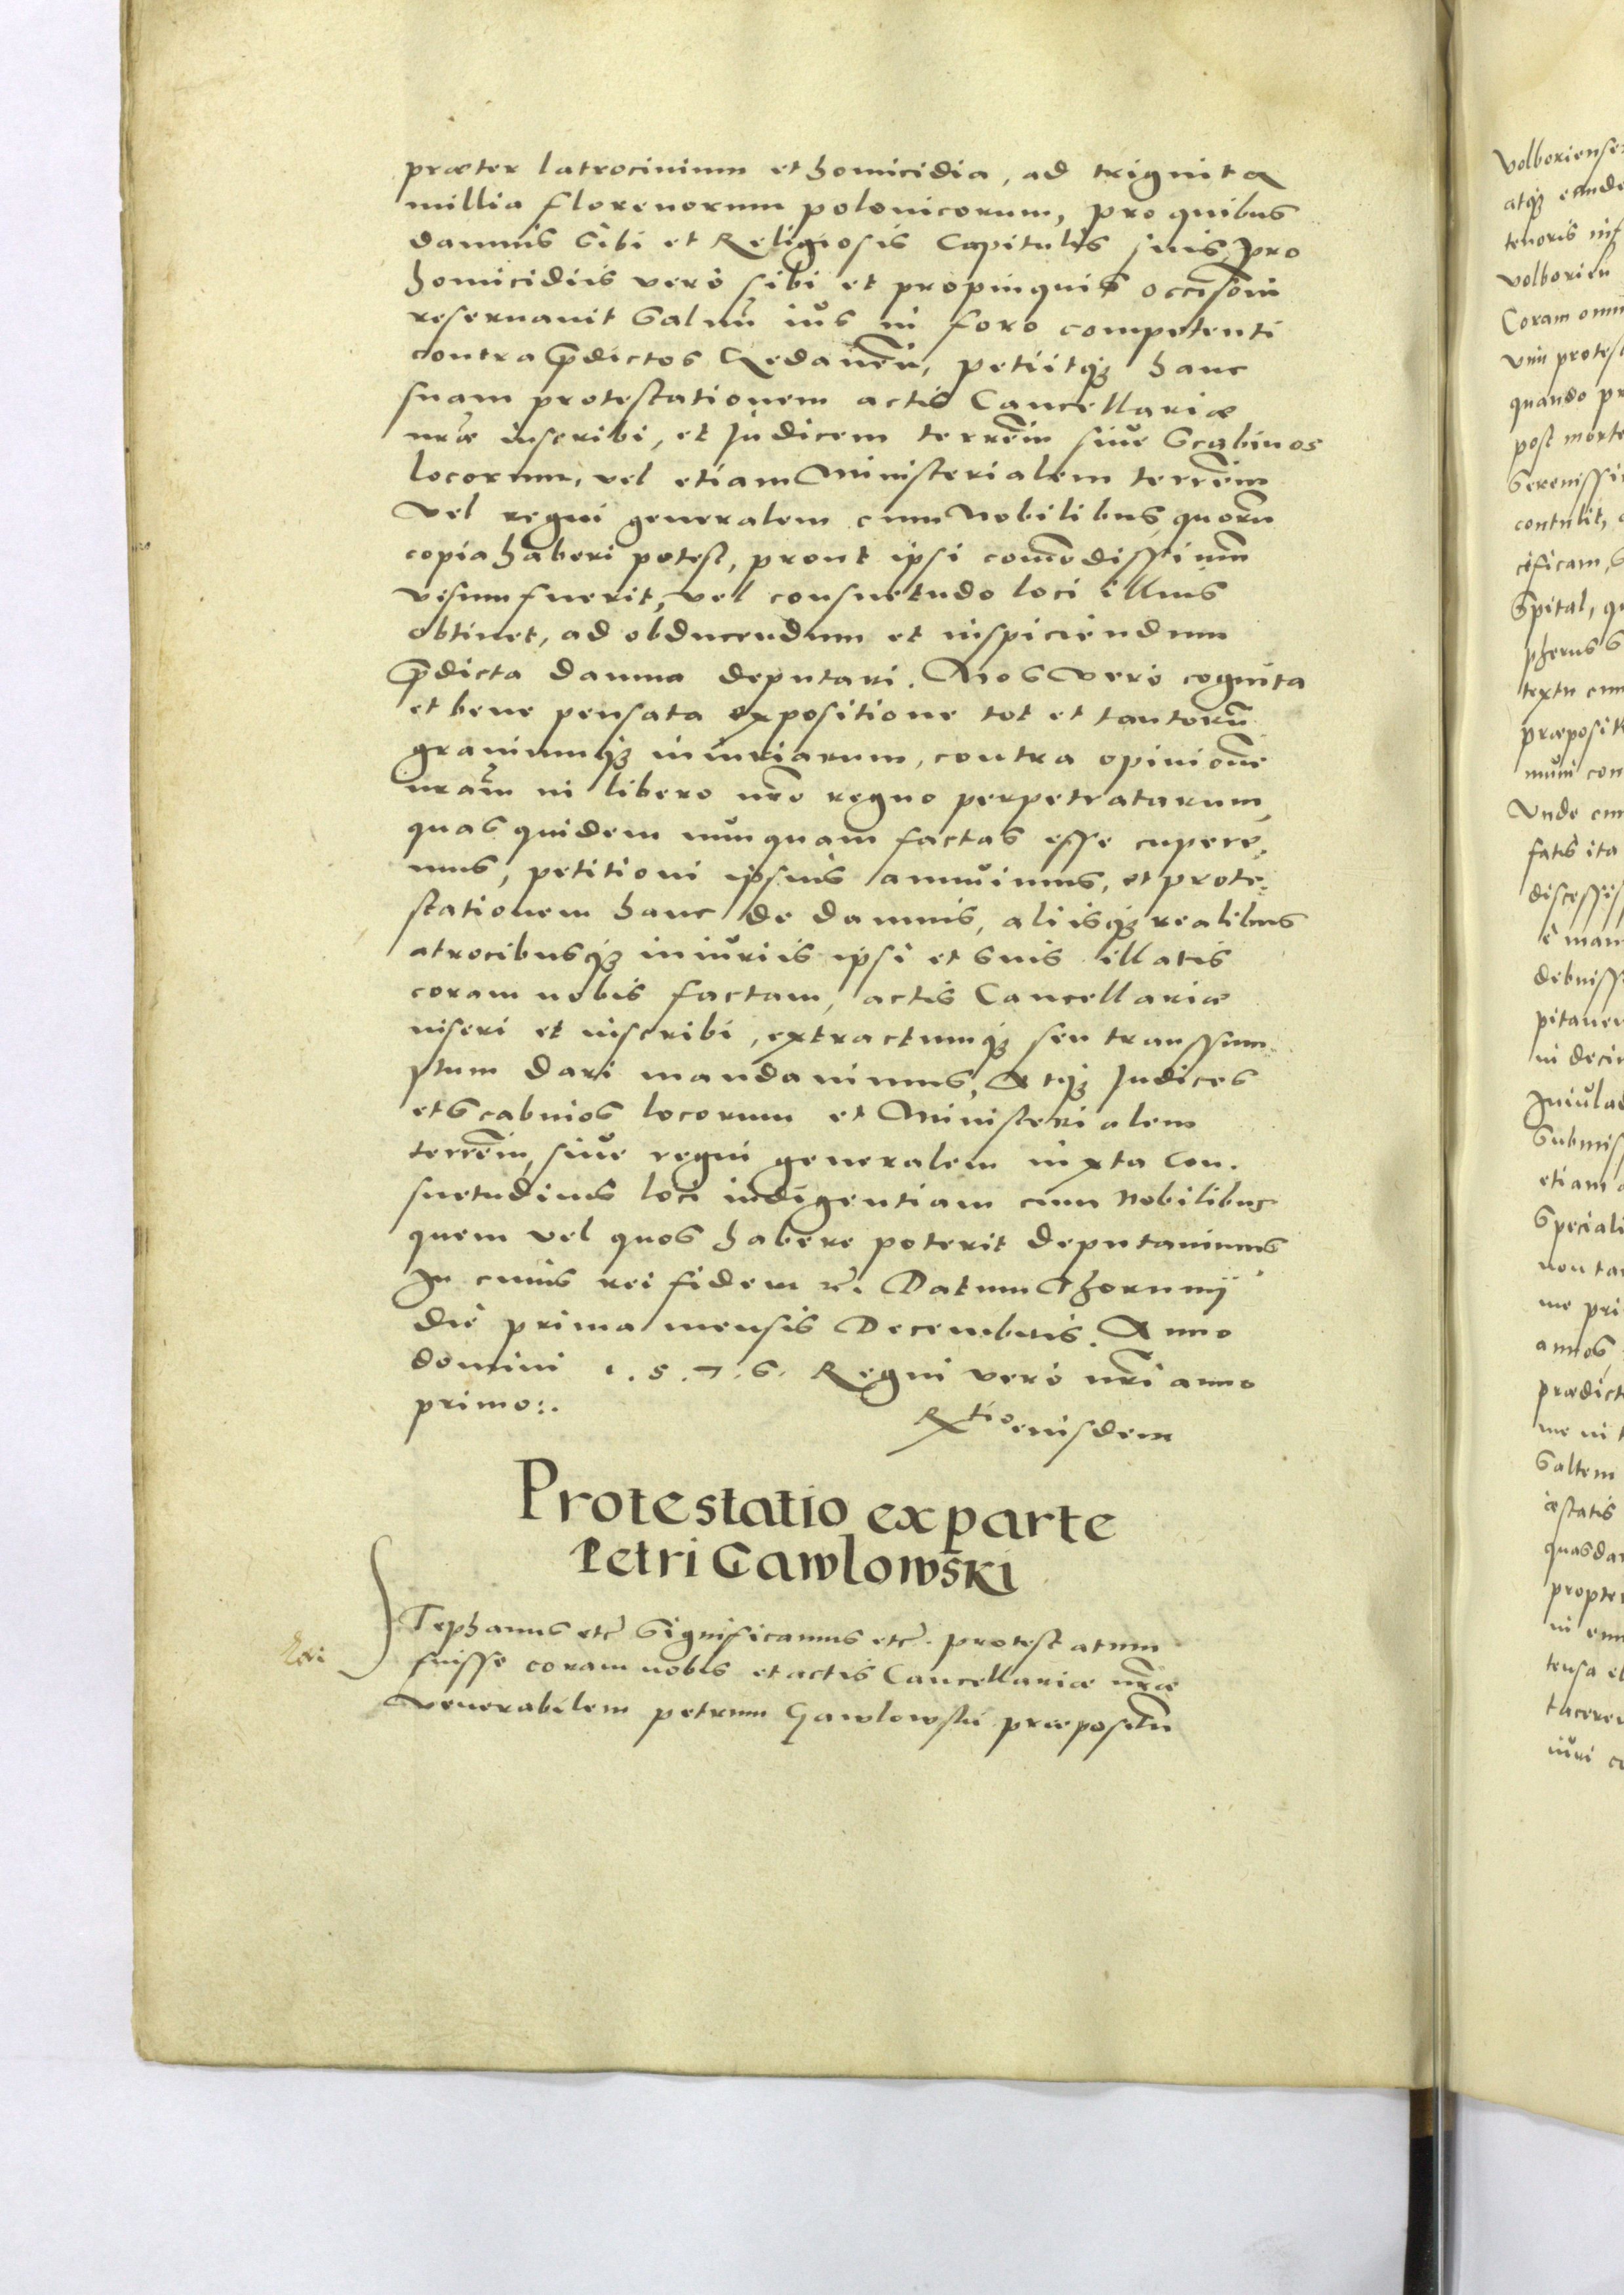 præter latrocinium et homicidia, ad triginta
millia florenorum polonicorum, pro quibus
damnis sibi et Religiosis Capitulis suis, pro
homicidiis vero sibi et propinquis occisorū
reseruauit saluū ius in foro competenti
contra p̄dictos Gedanēn, petiitq₃ hanc
suam protestationem actis Cancellariæ
nr̄æ inscribi, et Judicem terrēm siue Scabinos
locorum, vel etiam Ministerialem terrēm
Vel regni generalem cum Nobilibus, quorū
copia haberi potest, prout ipsi com̄odissimū
visum fuerit, vel consuetudo loci illius
obtinet, ad obducendum et inspiciendum
p̄dicta damna deputari. Nos vero cognita
et bene pensata expositione tot et tantorū
grauiumq₃ iniuriarum, contra opinionē
nrām in libero nr̄o regno perpetratarum,
quas quidem nunquam factas esse cupere-
mus, petitioni ipsius annuimus, et prote-
stationem hanc de damnis, aliisq₃ realibus
atrocibusq₃ iniuriis ipsi et suis illatis
coram nobis factam, actis Cancellariæ
inseri et inscribi, extractumq₃ seu transsum-
ptum dari mandauimus, Atq₃ Judices
et Scabinos locorum et Ministerialem
terrēm, siue regni generalem iuxta Con-
suetudinis loci indigentiam cum Nobilibus
quem vel quos habere poterit deputauimus
In cuius rei fidem etc. Datum Thorunij
die prima mensis Decembris. Anno
domini 1.5.7.6. Regni vero nr̄i anno
primo:.
Rtio eiusdem
Protestatio ex parte
Petri Gawlowski
Stephanus etc̄ Significamus etc̄. protestatum
fuisse coram nobis et actis Cancellariæ nr̄æ
Venerabilem petrum Gawlowski præpositū
Volboriense
atq₃ eunde
tenoris inf
volborien
Coram omni
vim protes
quando pr
post morte
Serenissi
contulit,
cificam, S
spital, qu
textu cum
præposit
muni con
Vnde cum
fatis ita
discessis
debuiss
pitaner
in deci
Submiss
etiam
Speciali
non ta
me pri
annos
prædict
me in
Saltem
ætatis
quasda
propter
in eun
tensa e
tacere
iuri co